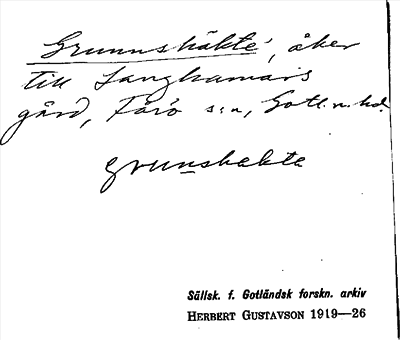 Grunnshäkte', åker
till Langhamars
gård, Fårö s:n, Gotl. n. hd.
grunshakte
Sällsk. f. Gotländsk forskn. arkiv
HERBERT GUSTAVSON 1919—26